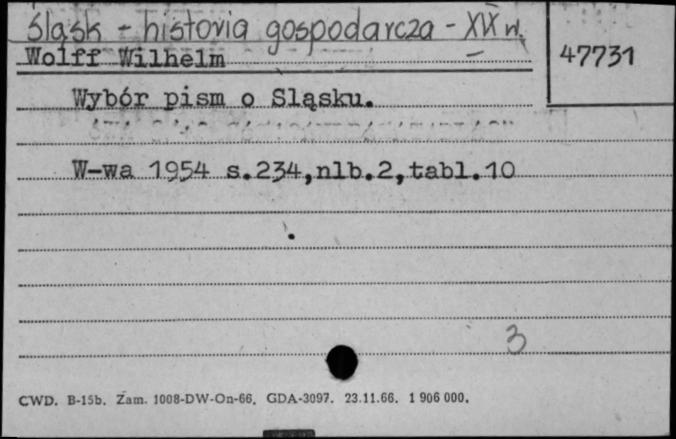 Śląsk - historia gospodarcza - XIX w.
Wolff Wilhelm
47731
Wybór pism o Sląsku.
W-wa 1954 s.234,nlb.2,tabl.10
3
CWD. B-15b. Zam. 1008-DW-On-66. GDA-3097. 23.11.66. 1 906 000.